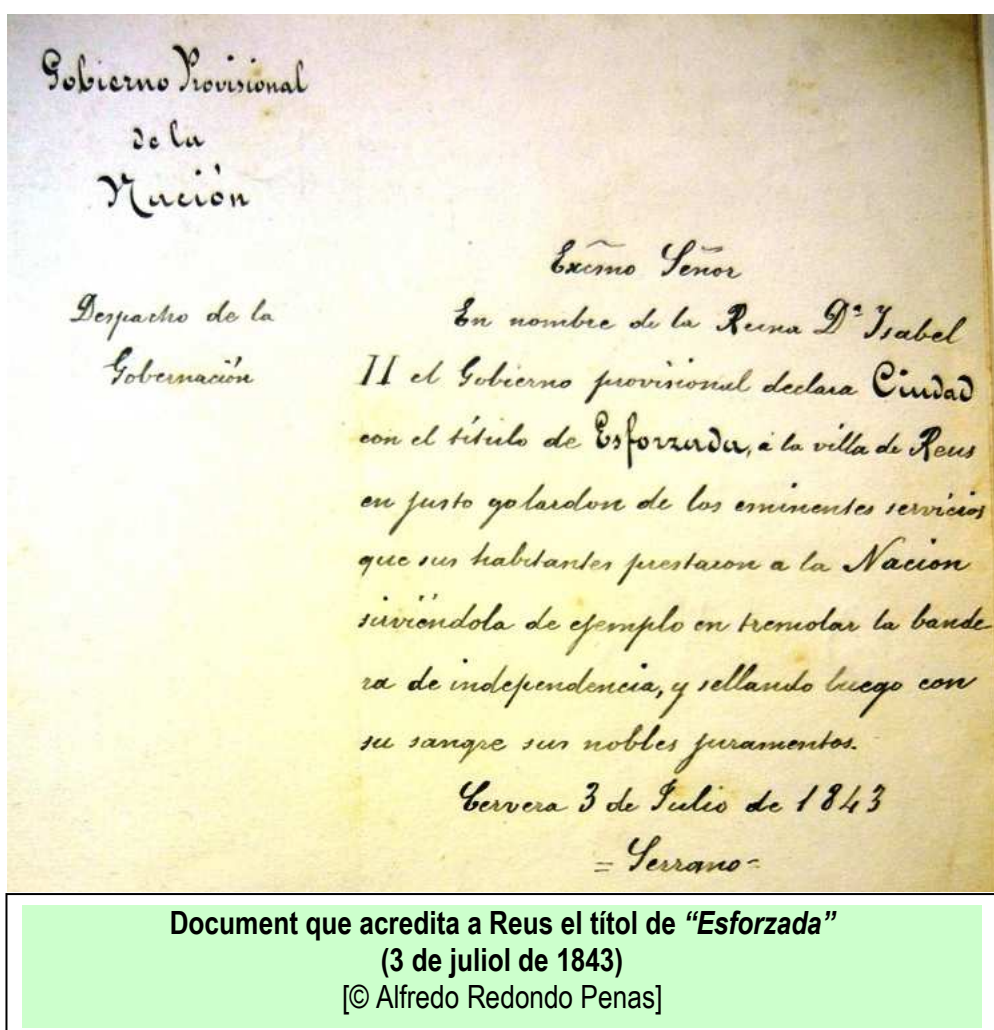 Gobierno Provisional
de la
Nación
Despacho de la
Gobernación
Exc̃mo Señor
En nombre de la Reina Dª Isabel
II el Gobierno provisional declara Ciudad
con el título de Esforzada, á la villa de Reus
en justo galardon de los eminentes servicios
que sus habitantes prestaron a la Nacion
sirviéndola de ejemplo en tremolar la bande
ra de independencia, y sellando luego con
su sangre sus nobles juramentos.
Cervera 3 de Julio de 1843
= Serrano =
Document que acredita a Reus el títol de “Esforzada”
(3 de juliol de 1843)
[© Alfredo Redondo Penas]